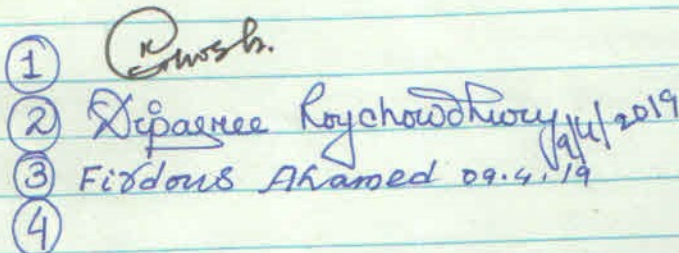 ①
② Dipasree Roychowdhury 9/4/2019
③ Firdous Ahamed 09.4.19
④